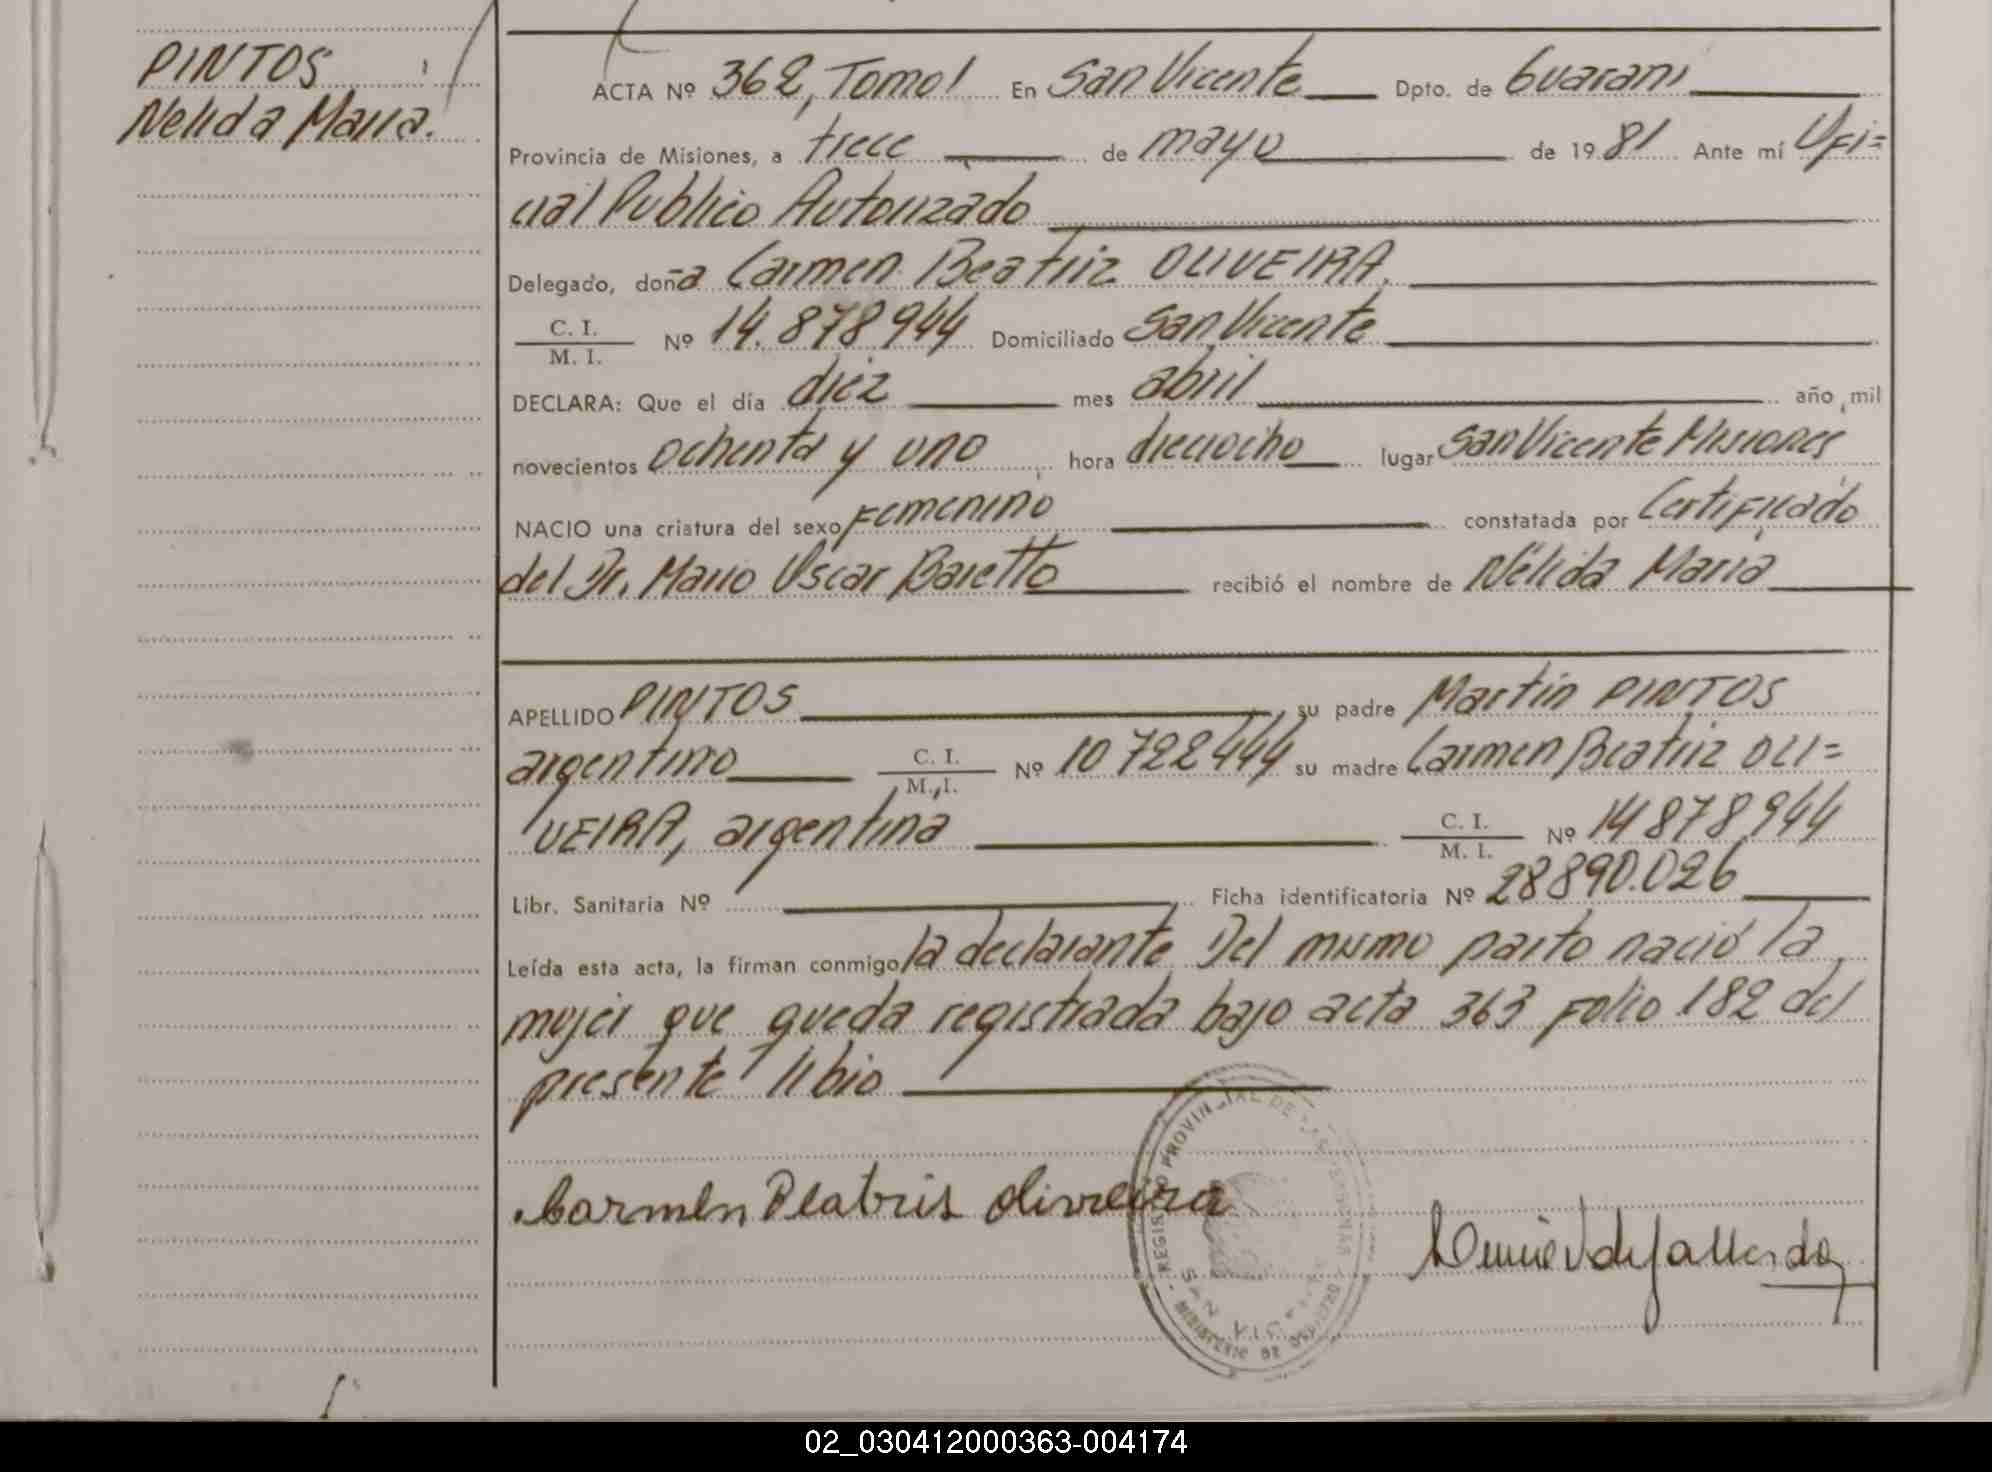 PINTOS
Nelida Maria.
ACTA Nº 362, Tomo I En San Vicente Dpto. de Guarani
Provincia de Misiones, a trece de mayo de 1981 Ante mí Ofi=
cial Publico Autorizado
Delegado, doña Carmen Beatriz OLIVEIRA.
C. I.
M. I. Nº 14.878944 Domiciliado San Vicente
DECLARA: Que el día diez mes abril año mil
novecientos ochenta y uno hora dieciocho lugar San Vicente Misiones
NACIO una criatura del sexo Femenino constatada por Certificado
del Dr. Mario Oscar Baretto recibió el nombre de Nélida Maria
APELLIDO PINTOS su padre Martin PINTOS
argentino C. I.
M. I. Nº 10722444 su madre Carmen Beatriz OLI=
VEIRA, argentina C. I.
M. I. Nº 14878944
Libr. Sanitaria Nº Ficha identificatoria Nº 28890.026
Leída esta acta, la firman conmigo la declarante Del mismo parto nació la
mujer que queda registrada bajo acta 363 Folio 182 del
presente libro
Carmen Beatris Oliveira
REGISTRO PROVINCIAL DE LAS PERSONAS
SAN VICENTE
MINISTERIO DE GOBIERNO
02_030412000363-004174